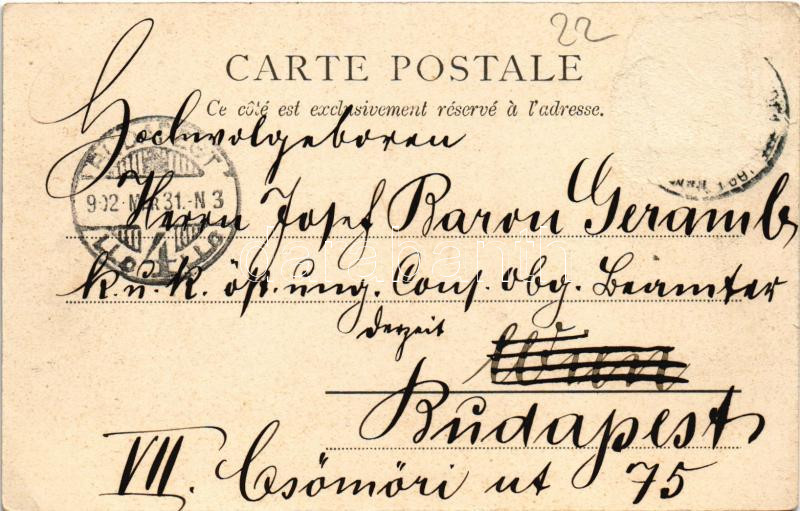 22
CARTE POSTALE
Ce côté est exclusivement réservé à l'adresse.
Hochwolgeboren
Herrn Josef Baron Geramb
k. u. k. öst. ung. Cons. obg. Beamter
derzeit
Wien
Budapest
VII. Csömöri ut 75
902. MAR 31.-N 3
4